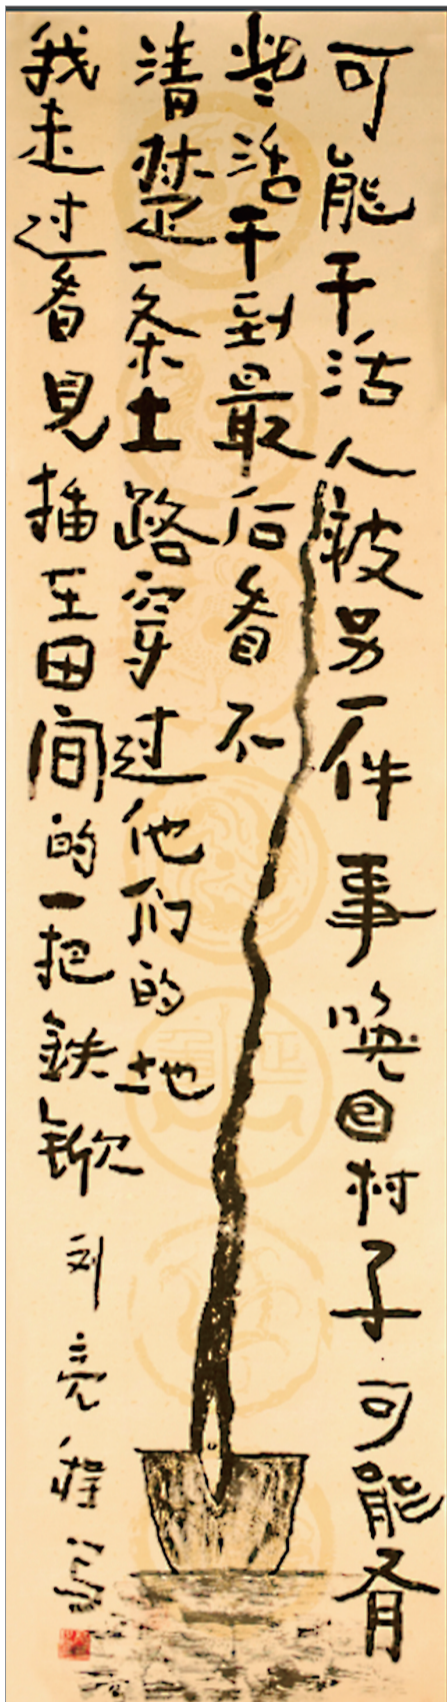 可能干活人被另一件事唤回村子可能有
些活干到最后看不
清楚一条土路穿过他们的地
我走过看见插在田间的一把铁锨
刘亮程